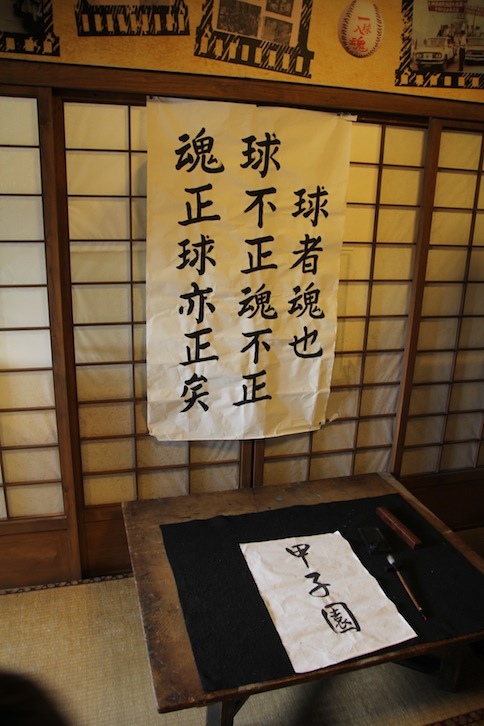 球者魂也
球不正魂不正
魂正球亦正矣
甲子園
一球
入魂